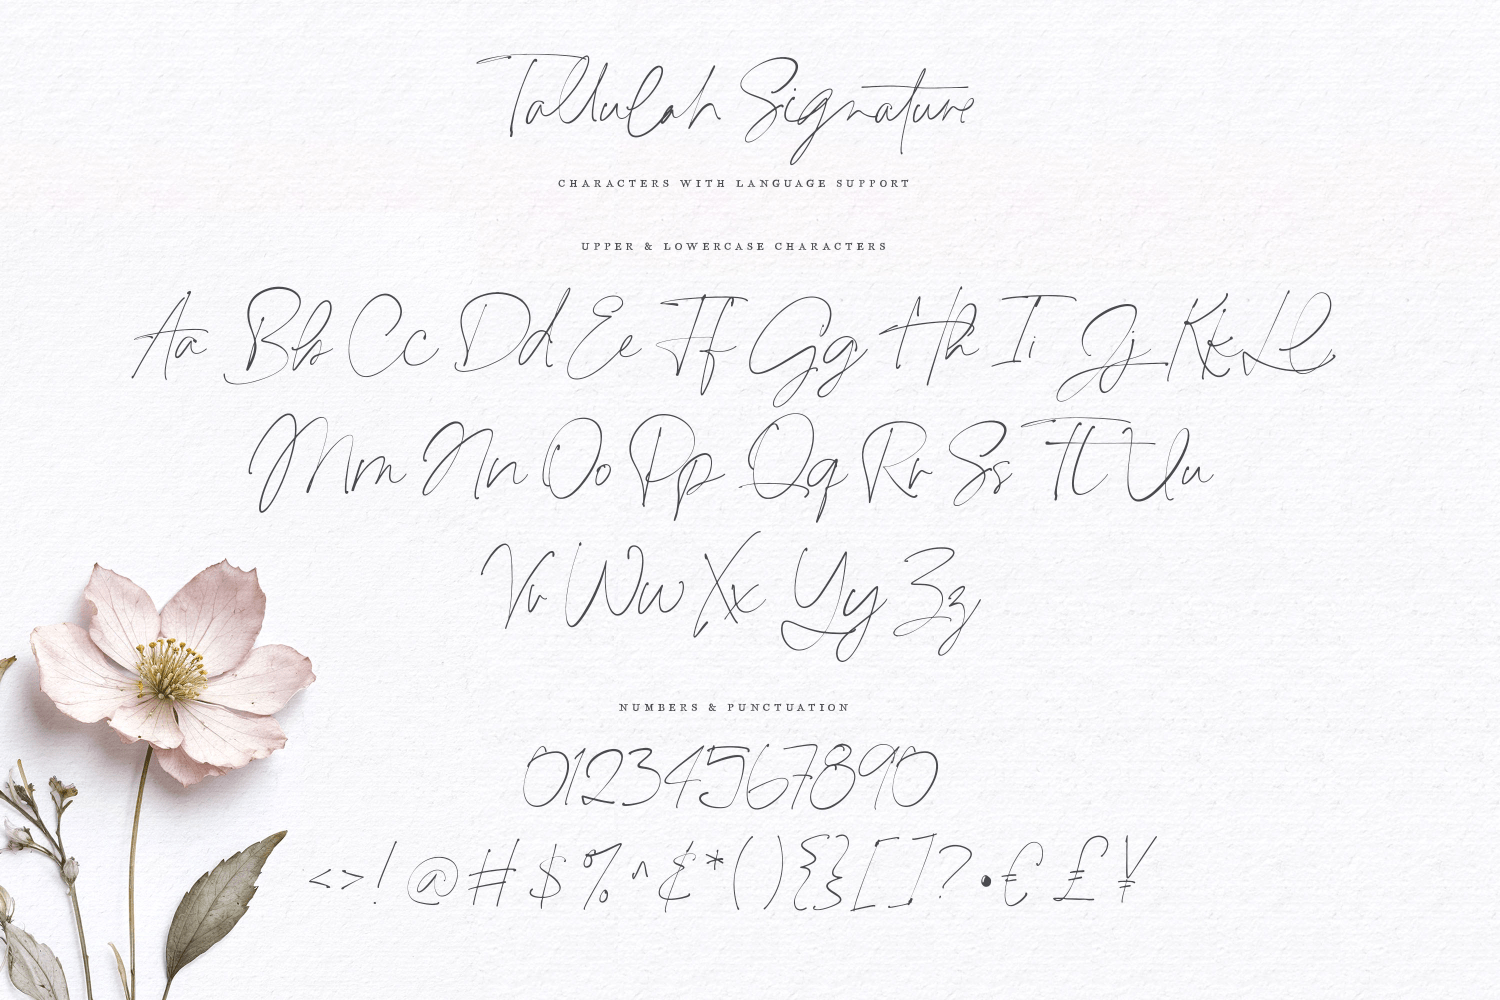 Tallulah Signature
CHARACTERS WITH LANGUAGE SUPPORT
UPPER & LOWERCASE CHARACTERS
Aa Bb Cc Dd Ee Ff Gg Hh Ii Jj Kk Ll
Mm Nn Oo Pp Qq Rr Ss Tt Uu
Vv Ww Xx Yy Zz
NUMBERS & PUNCTUATION
01234567890
<>!@#$%^&*(){}[]?•€£¥